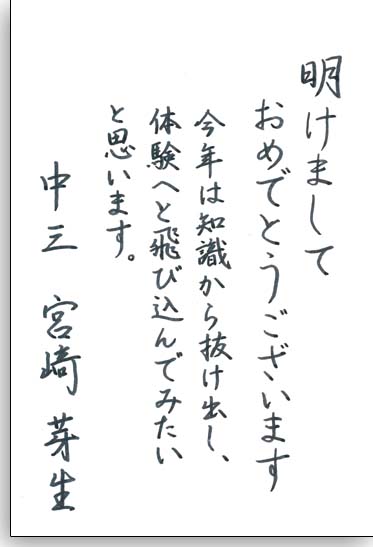 明けまして
おめでとうございます
今年は知識から抜け出し、
体験へと飛び込んでみたい
と思います。
中三 宮崎 芽生